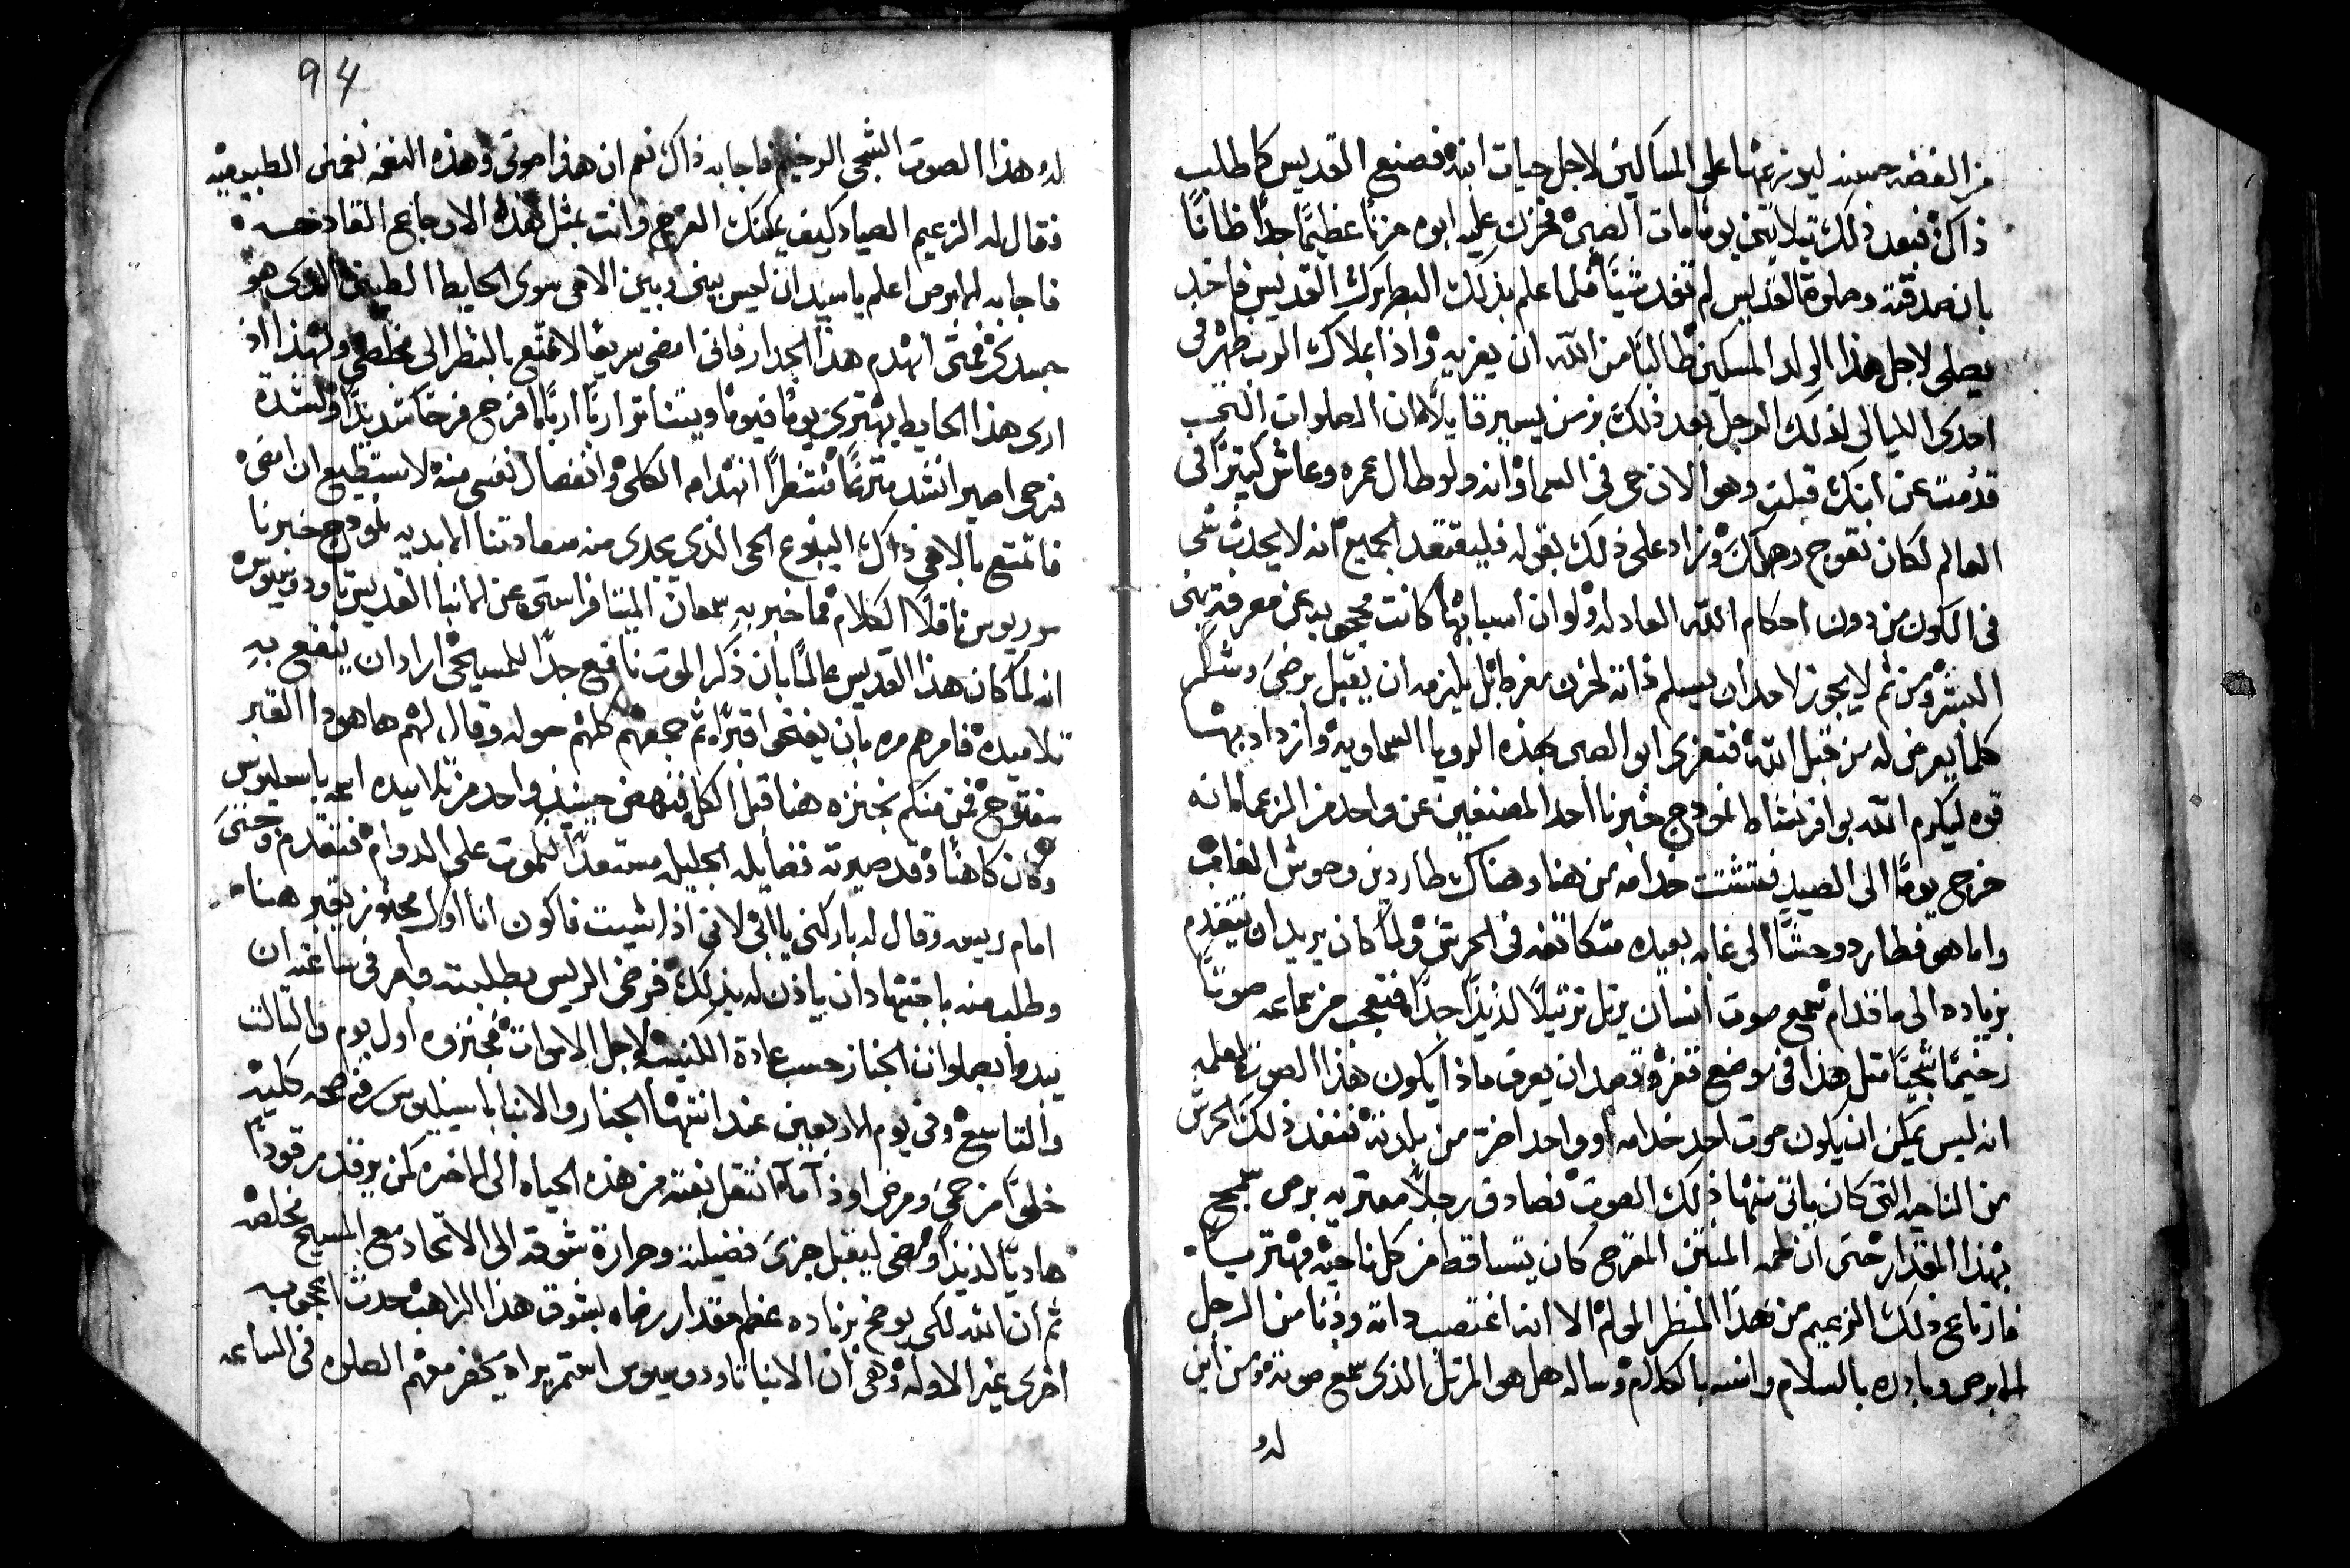 من الفضه حينيذ ليوزعها على المساكين لاجل حيات ابنه فصنع القديس كما طلب
ذاك فبعد ذلك بثلاثين يوما مات الصبى فحزن عليه ابوه حزنًا عظيمًا جدًا ظانًا
بان صدقته وصلوة القديس لم تفد شيًا فلما علم بذلك البطريرك القديس فاخذ
يصلى لاجل هذا الوالد المسكين طالبًا من الله ان يعزيه واذا بملاك الرب ظهر فى
احدى الليالى لذلك الرجل بعد ذلك بزمن يسير قايلًا ان الصلوات التى
قدمت عن ابنك قبلت وهو الان حى فى السما وانه ولو طال عمره وعاش كثيرًا فى
العالم لكان تقوج وهلك وزاد على ذلك بقوله فليعتقد الجميع انه لا يحدث شى
فى الكون من دون احكام الله العادله ولو ان اسبابها كانت محجوبه عن معرفة بنى
البشر ومن ثم لا يجوز لاحد ان يسلم ذاته لحزن مفرط بل يلزمه ان يقبل برضىً وشكر
كلما يعرض له من قبل الله فتعزى ابو الصبى بهذه الرويا السماويه وازداد بها
قوه ليكرم الله بوافر نشاط انموذج خبرنا احد المصنفين عن واحد من الزعما انه
خرج يومًا الى الصيد فتشتت خدامه من هنا وهناك طاردين وحوش الغاب
واما هو فطارد وحشًا الى غابه بعيده متكاثفه فى الحرش ولما كان يريد ان يتقدم
بزياده الى ما قدام سمع صوت انسان يرتل ترتيلًا لذيذًا جدًا فتعجب من سماعه صوتًا
رخيمًا شجيًا مثل هذا فى موضع قفر وقصد ان يعرف ماذا يكون هذا الصوت لعلمه
انه ليس يمكن ان يكون صوت احد خدامه او واحد اخر من بلدته فنفذ ذلك الحرش
من الناحيه التى كان ياتى منها ذلك الصوت فصادف رجلًا معتريه برص سمج
بهذا المقدار حتى ان لحمه المنتن المقرح كان يتساقط من كل ناحيه مهتريًا
فارتاع ذلك الزعيم من هذا المنظر المولم الا انه اغتصب ذاته ودنا من الرجل
الابرص وبادره بالسلام وانسه بالكلام وساله هل هو المرتل الذى سمع صوته ومن اين
له
94
له هذا الصوت الشجى الرخيم فاجابه ذاك نعم ان هذا صوتى وهذه النغمه نغمتى الطبيعيه
فقال له الزعيم الصياد كيف يمكنك الفرح وانت بمثل هذه الاوجاع القادحه
فاجابه الابرص اعلم يا سيد ان ليس بينى وبين الاهى سوى الحايط الطينى الذى هو
جسدى فمتى انهدم هذا الجدار فانى امضى سريعًا لاتمتع بالنظر الى مخلصى ولهذا اذ
ارى هذا الحايط يهترى يومًا فيومًا ويتناثر اربًا اربًا افرح فرحًا شديدًا ولشدة
فرحى اصير انشد مترنمًا منتظرًا انهدامه الكلى وانفصال نفسى منه لاستطيع ان امضى
فاتمتع بالاهى ذاك الينبوع الحى الذى تجرى منه سعادتنا الابديه انموذج خبرنا
سوريوس ناقلًا الكلام مما خبر به سمعان الميتافراستى عن الانبا القديس تاودوسيوس
انه لما كان هذا القديس عالمًا بان ذكر الموت نافع جدًا للمسيحى اراد ان ينفع به
تلاميده فامرهم مره بان يفتحوا قبرًا ثم جمعهم كلهم حوله وقال لهم ها هوذا القبر
مفتوح فمن منكم نجنزه هنا قبل الكل فنهض حينيذ واحد من تلاميده اسمه باسيليوس
وكان كاهنًا وقد صيرته فضايله الجليله مستعدًا للموت على الدوام فتقدم وجثى
امام رييسه وقال له باركنى يا ابى لانى اذا شيت فاكون انا اول مجنوز يقبر هنا
وطلب منه باجتهاد ان ياذن له بذلك فرضى الرييس بطلبته وامر فى ساعته ان
يبدوا بصلوات الجناز حسب عادة الكنيسه لاجل الاموات فجنزوه اول يوم والثالث
والتاسع وفى يوم الاربعين عند انتها الجناز والانبا باسيليوس فى صحه كليه
خلوًا من حمى ومرض او ذا الم انتقل بغته من هذه الحياه الى الاخره كمن يرقد رقودًا
هاديًا لذيذًا ومضى ليقبل جزى فضيلته وحرارة شوقه الى الاتحاد مع المسيح مخلصه
ثم ان الله لكى يوضح بزياده عظم مقدار رضاه بشوق هذا الراهب حدث اعجوبه
اخرى غير الاوله وهى ان الانبا تاودوسيوس استمر يراه يحضر معهم الصلوه فى الساعه